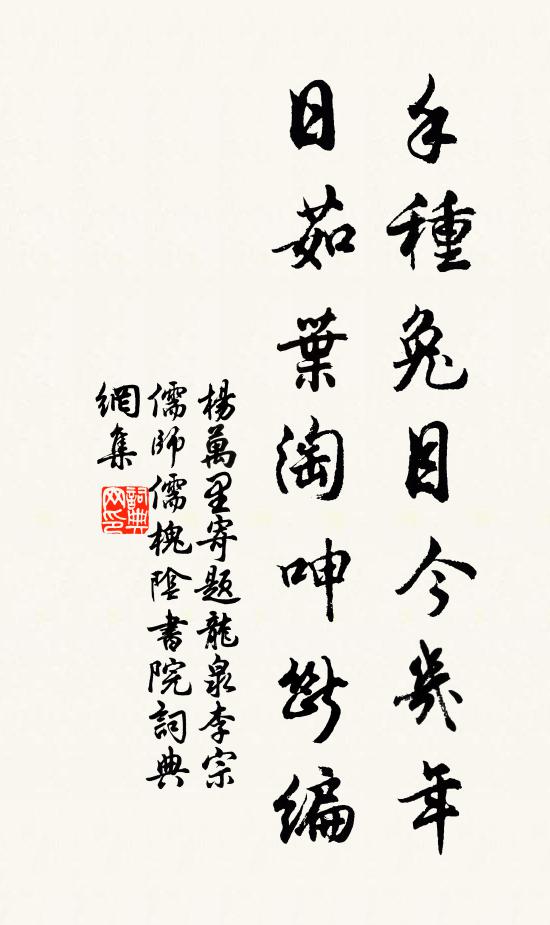 手種兔目今幾年
日茹葉淘呻斷編
楊萬里寄題龍泉李宗
儒師儒槐陰書院詞典
網集
詞典
网印